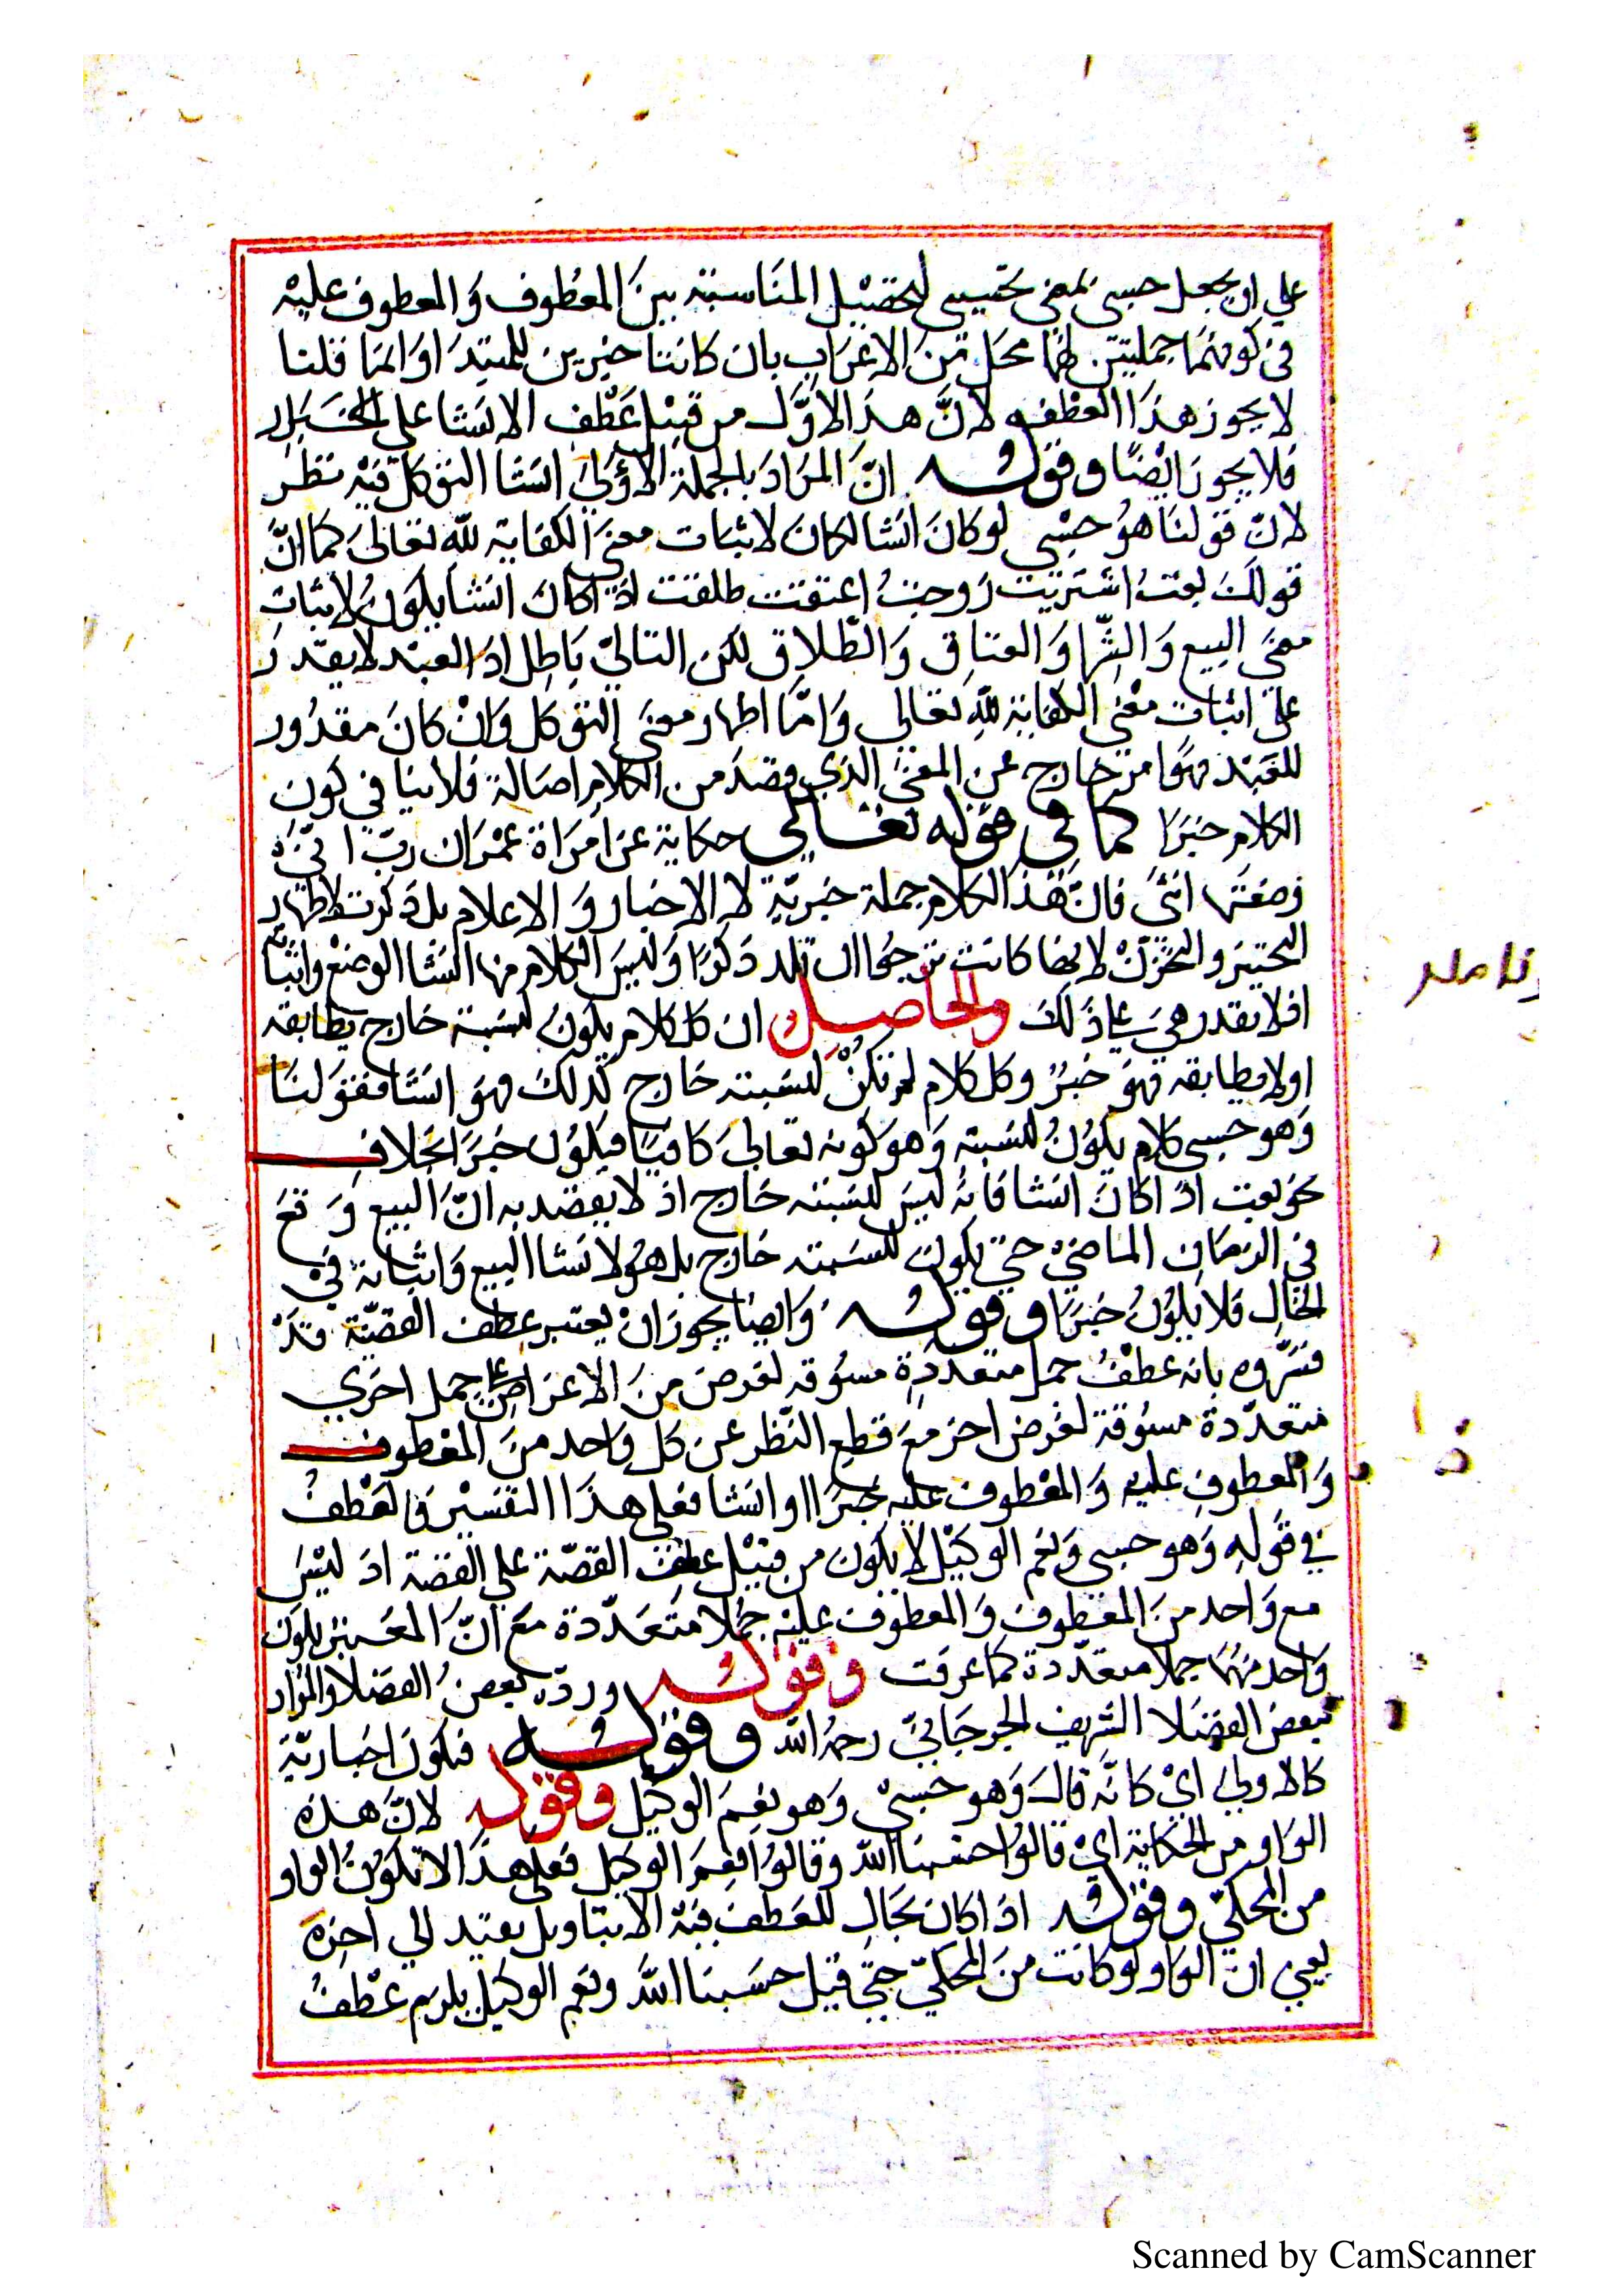 علي ان يجعل حسبي بمعني يحسبني لتحصيل المناسبة بين المعطوف والمعطوف عليه
في كونهما جملتين لهما محل من الاعراب بان كانتا خبرين للمبتدا وانما قلنا
لا يجوز هذا العطف لان هذا الاول من قبيل عطف الانشا علي الاخبار
فلا يجوز ايضا وقوله ان المراد بالجملة الاولي انشا التوكل فيه نظر
لان قولنا هو حسبي لو كان انشا لكان لاثبات معني الكفاية لله تعالي كما ان
قولك بعت اشتريت زوجت اعتقت طلقت اذا كان انشا يكون لاثبات
معني البيع والشرا والعتاق والطلاق لكن التالي باطل اذ العبد لا يقدر
علي اثبات معني الكفاية لله تعالي واما اظهار معني التوكل وان كان مقدور
للعبد فهو امر خارج عن المعني الذي قصد من الكلام اصالة فلا ينافي كون
الكلام خبرا كما في قوله تعالي حكاية عن امراة عمران رب اني
وضعتها انثي فان هذا الكلام جملة خبرية لا الاخبار والاعلام بل ذكرت لاظهار
التحير والتحزن لانها كانت ترجوا ان تلد ذكورا وليس الكلام منها انشا الوضع واثبا
اذ لا يقدر هي علي ذلك والحاصل ان كل كلام يكون لنسبته خارج يطابقه
او لا يطابقه فهو خبر وكل كلام لم تكن لنسبته خارج كذلك فهو انشا فقولنا
وهو حسبي كلام يكون لنسبته وهو كونه تعالي كافيا فيكون خبرا بخلاف
نحو بعت اذا كان انشا فانه ليس لنسبته خارج اذ لا يقصد به ان البيع وقع
في الزمان الماضي حتي يكون لنسبته خارج بل هو لانشا البيع واثباته في
الحال فلا يكون خبرا وقوله وايضا يجوز ان يعتبر عطف القصة قد
فسروه بانه عطف جمل متعددة مسوقة لغرض من الاغراض علي جمل اخري
متعددة مسوقة لغرض اخر مع قطع النظر عن كل واحد من المعطوف
والمعطوف عليه والمعطوف عليه خبرا او انشا فعلي هذا التفسير فالعطف
في قوله وهو حسبي ونعم الوكيل لا يكون من قبيل عطف القصة علي القصة اذ ليس
مع واحد من المعطوف والمعطوف عليه جملا متعددة مع ان المعتبر يكون
واحد منهما جملا متعددة كما عرفت وقوله ورده بعض الفضلا والمراد
ببعض الفضلا الشريف الجرجاني رحمه الله وقوله فتكون اخبارية
كالاولي اي كانه قال وهو حسبي وهو نعم الوكيل وقوله لان هذه
الواو من الحكاية اي قالوا حسبنا الله وقالوا نعم الوكيل فعلي هذا لا تكون الواو
من المحكي وقوله اذا كان مجال للعطف فيه الا بتاويل بعيد الي اخره
يعني ان الواو لو كانت من المحكي حتي قيل حسبنا الله ونعم الوكيل يلزم عطف
Scanned by CamScanner